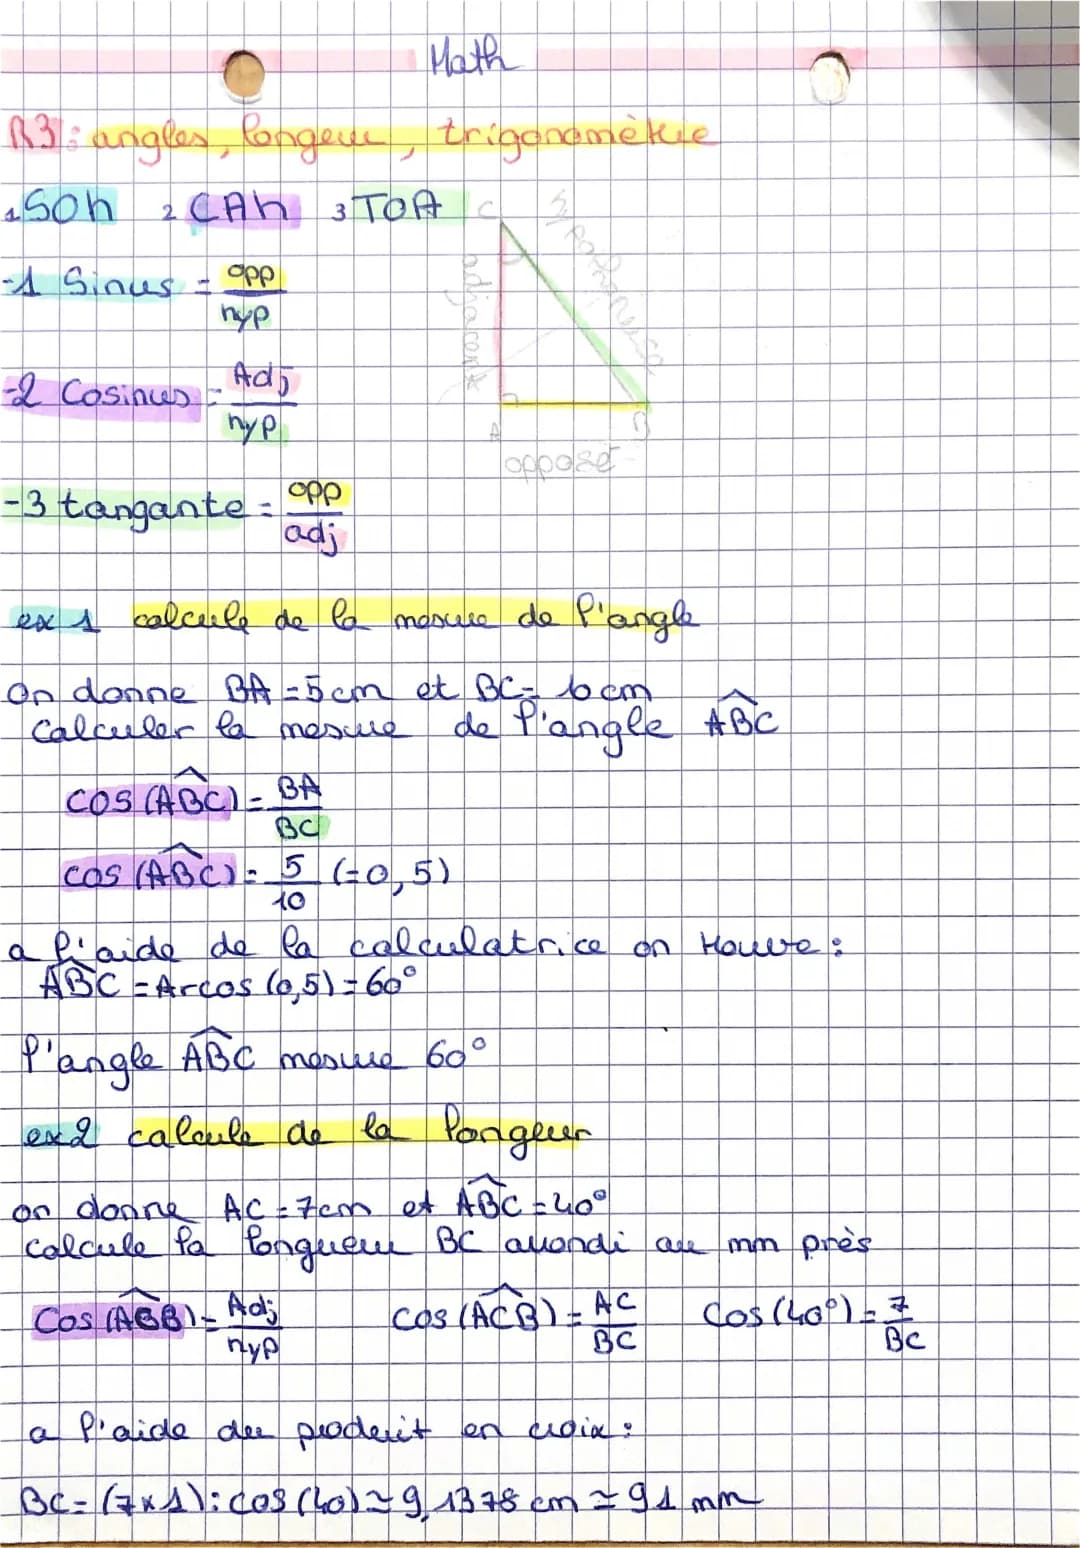 Math
R3: angles, longeur, trigonomètrie
1 SOh 2 CAh 3 TOA
C
hypothenuse
adjacent
-1 Sinus = opp
hyp
-2 Cosinus = Adj
hyp
A
B
opposé
-3 tangante = opp
adj
ex 1 calcule de la mesure de l'angle
on donne BA = 5 cm et BC = 10 cm
Calculer la mesure de l'angle ABC
COS (ABC) = BA
BC
COS (ABC) = 5 (=0,5)
10
a l'aide de la calculatrice on trouve :
ABC = Arcos (0,5) = 60°
l'angle ABC mesure 60°
ex2 calcule de la longeur
on donne AC = 7cm et ABC = 40°
calcule la longueur BC arrondi au mm près
Cos (ACB) = Adj
hyp
cos (ACB) = AC
BC
Cos (40°) = 7
BC
a l'aide du produit en croix :
BC = (7x1) : cos (40) ≃ 9,1378 cm ≃ 91 mm